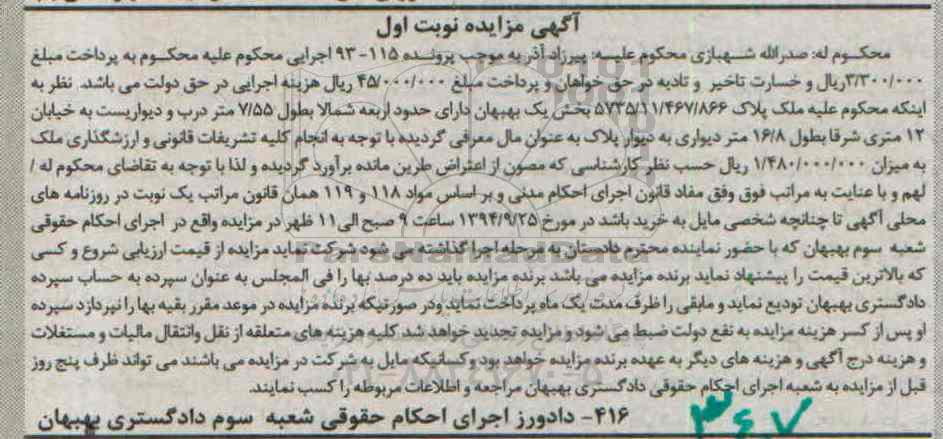 آگهی مزایده نوبت اول
محکـوم له: صدرالله شـهبازی محکوم علیـه: پیرزاد آذر به موجب پرونـده ۱۱۵- ۹۳ اجرایی محکوم علیه محکـوم به پرداخت مبلغ
۳/۳۰۰/۰۰۰ریال و خسارت تاخیر و تادیه در حق خواهان و پرداخت مبلغ ۴۵/۰۰۰/۰۰۰ ریال هزینه اجرایی در حق دولت می باشد. نظر به
اینکه محکوم علیه ملک پلاک ۵۷۳۵/۱۱/۴۶۷/۸۶۶ بخش یک بهبهان دارای حدود اربعه شمالا بطول ۷/۵۵ متر درب و دیواریست به خیابان
۱۲ متری شرقا بطول ۱۶/۸ متر دیواری به دیوار پلاک به عنوان مال معرفی گردیده با توجه به انجام کلیه تشریفات قانونی و ارزشگذاری ملک
به میزان ۱/۴۸۰/۰۰۰/۰۰۰ ریال حسب نظر کارشناسی که مصون از اعتراض طرین مانده برآورد گردیده و لذا با توجه به تقاضای محکوم له /
لهم و با عنایت به مراتب فوق وفق مفاد قانون اجرای احکام مدنی و بر اساس مواد ۱۱۸ و ۱۱۹ همان قانون مراتب یک نوبت در روزنامه های
محلی آگهی تا چنانچه شخصی مایل به خرید باشد در مورخ ۱۳۹۴/۹/۲۵ ساعت ۹ صبح الی ۱۱ ظهر در مزایده واقع در اجرای احکام حقوقی
شعبه سوم بهبهان که با حضور نماینده محترم دادستان به مرحله اجرا گذاشته می شود شرکت نماید مزایده از قیمت ارزیابی شروع و کسی
که بالاترین قیمت را پیشنهاد نماید برنده مزایده می باشد برنده مزایده باید ده درصد بها را فی المجلس به عنوان سپرده به حساب سپرده
دادگستری بهبهان تودیع نماید و مابقی را ظرف مدت یک ماه پرداخت نماید ودر صورتیکه برنده مزایده در موعد مقرر بقیه بها را نپردازد سپرده
او پس از کسر هزینه مزایده به نفع دولت ضبط می شود و مزایده تجدید خواهد شد. کلیه هزینه های متعلقه از نقل وانتقال مالیات و مستغلات
و هزینه درج آگهی و هزینه های دیگر به عهده برنده مزایده خواهد بود وکسانیکه مایل به شرکت در مزایده می باشند می تواند ظرف پنج روز
قبل از مزایده به شعبه اجرای احکام حقوقی دادگستری بهبهان مراجعه و اطلاعات مربوطه را کسب نمایند.
۴۱۶- دادورز اجرای احکام حقوقی شعبه سوم دادگستری بهبهان
۳۶۷
ParsNamadData